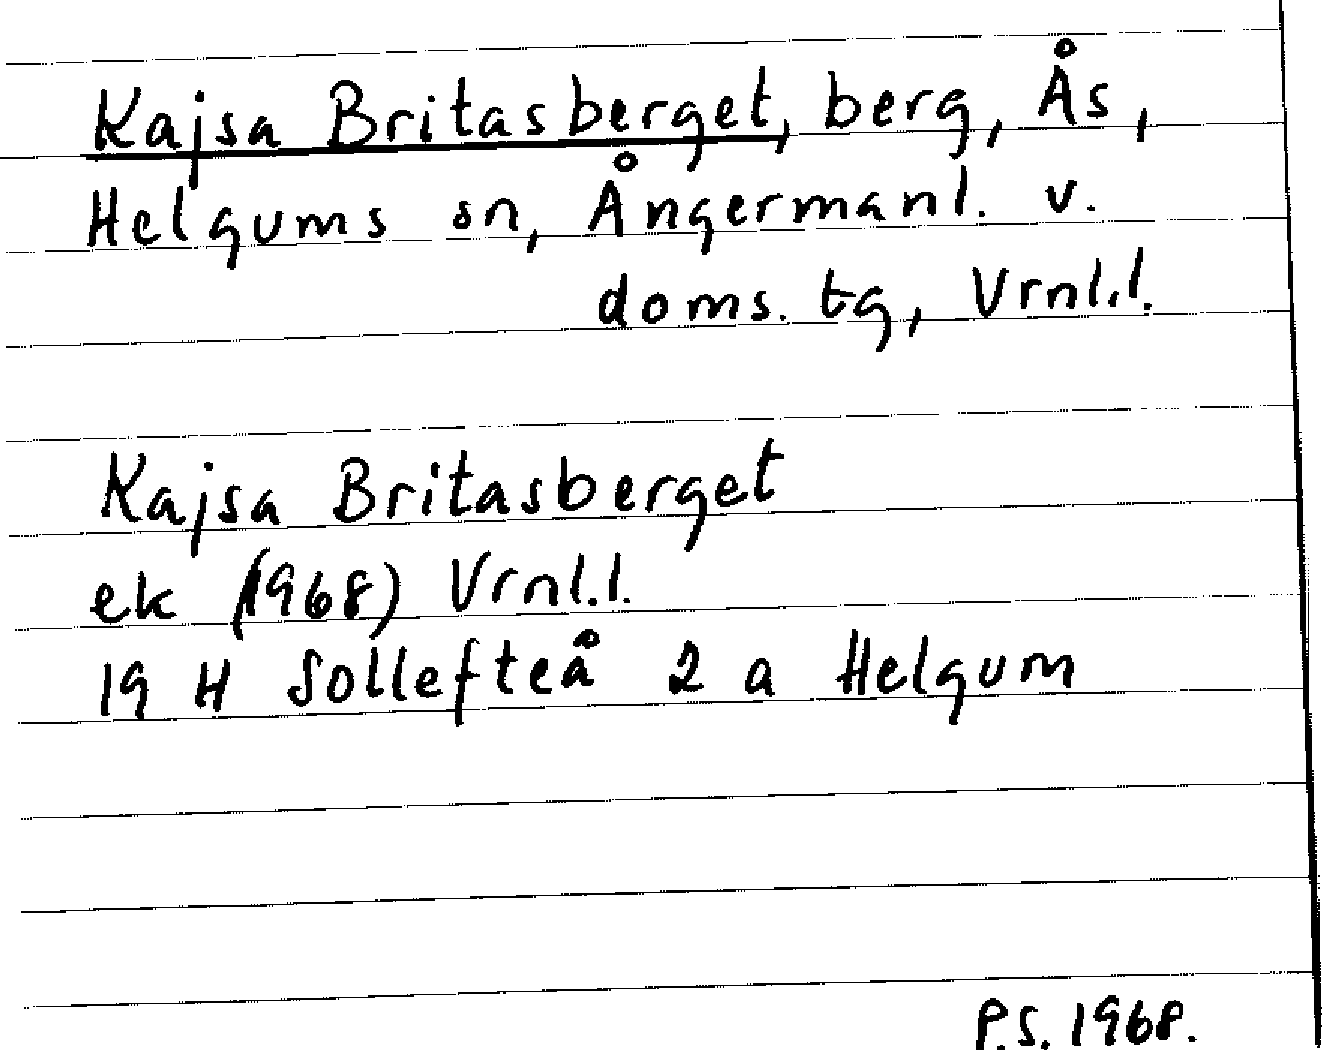 Kajsa Britasberget, berg, Ås,
Helgums sn, Ångermanl. v.
doms. tg, Vrnl.l.
Kajsa Britasberget
ek (1968) Vrnl.l.
19 H Sollefteå 2 a Helgum
P.S. 1968.